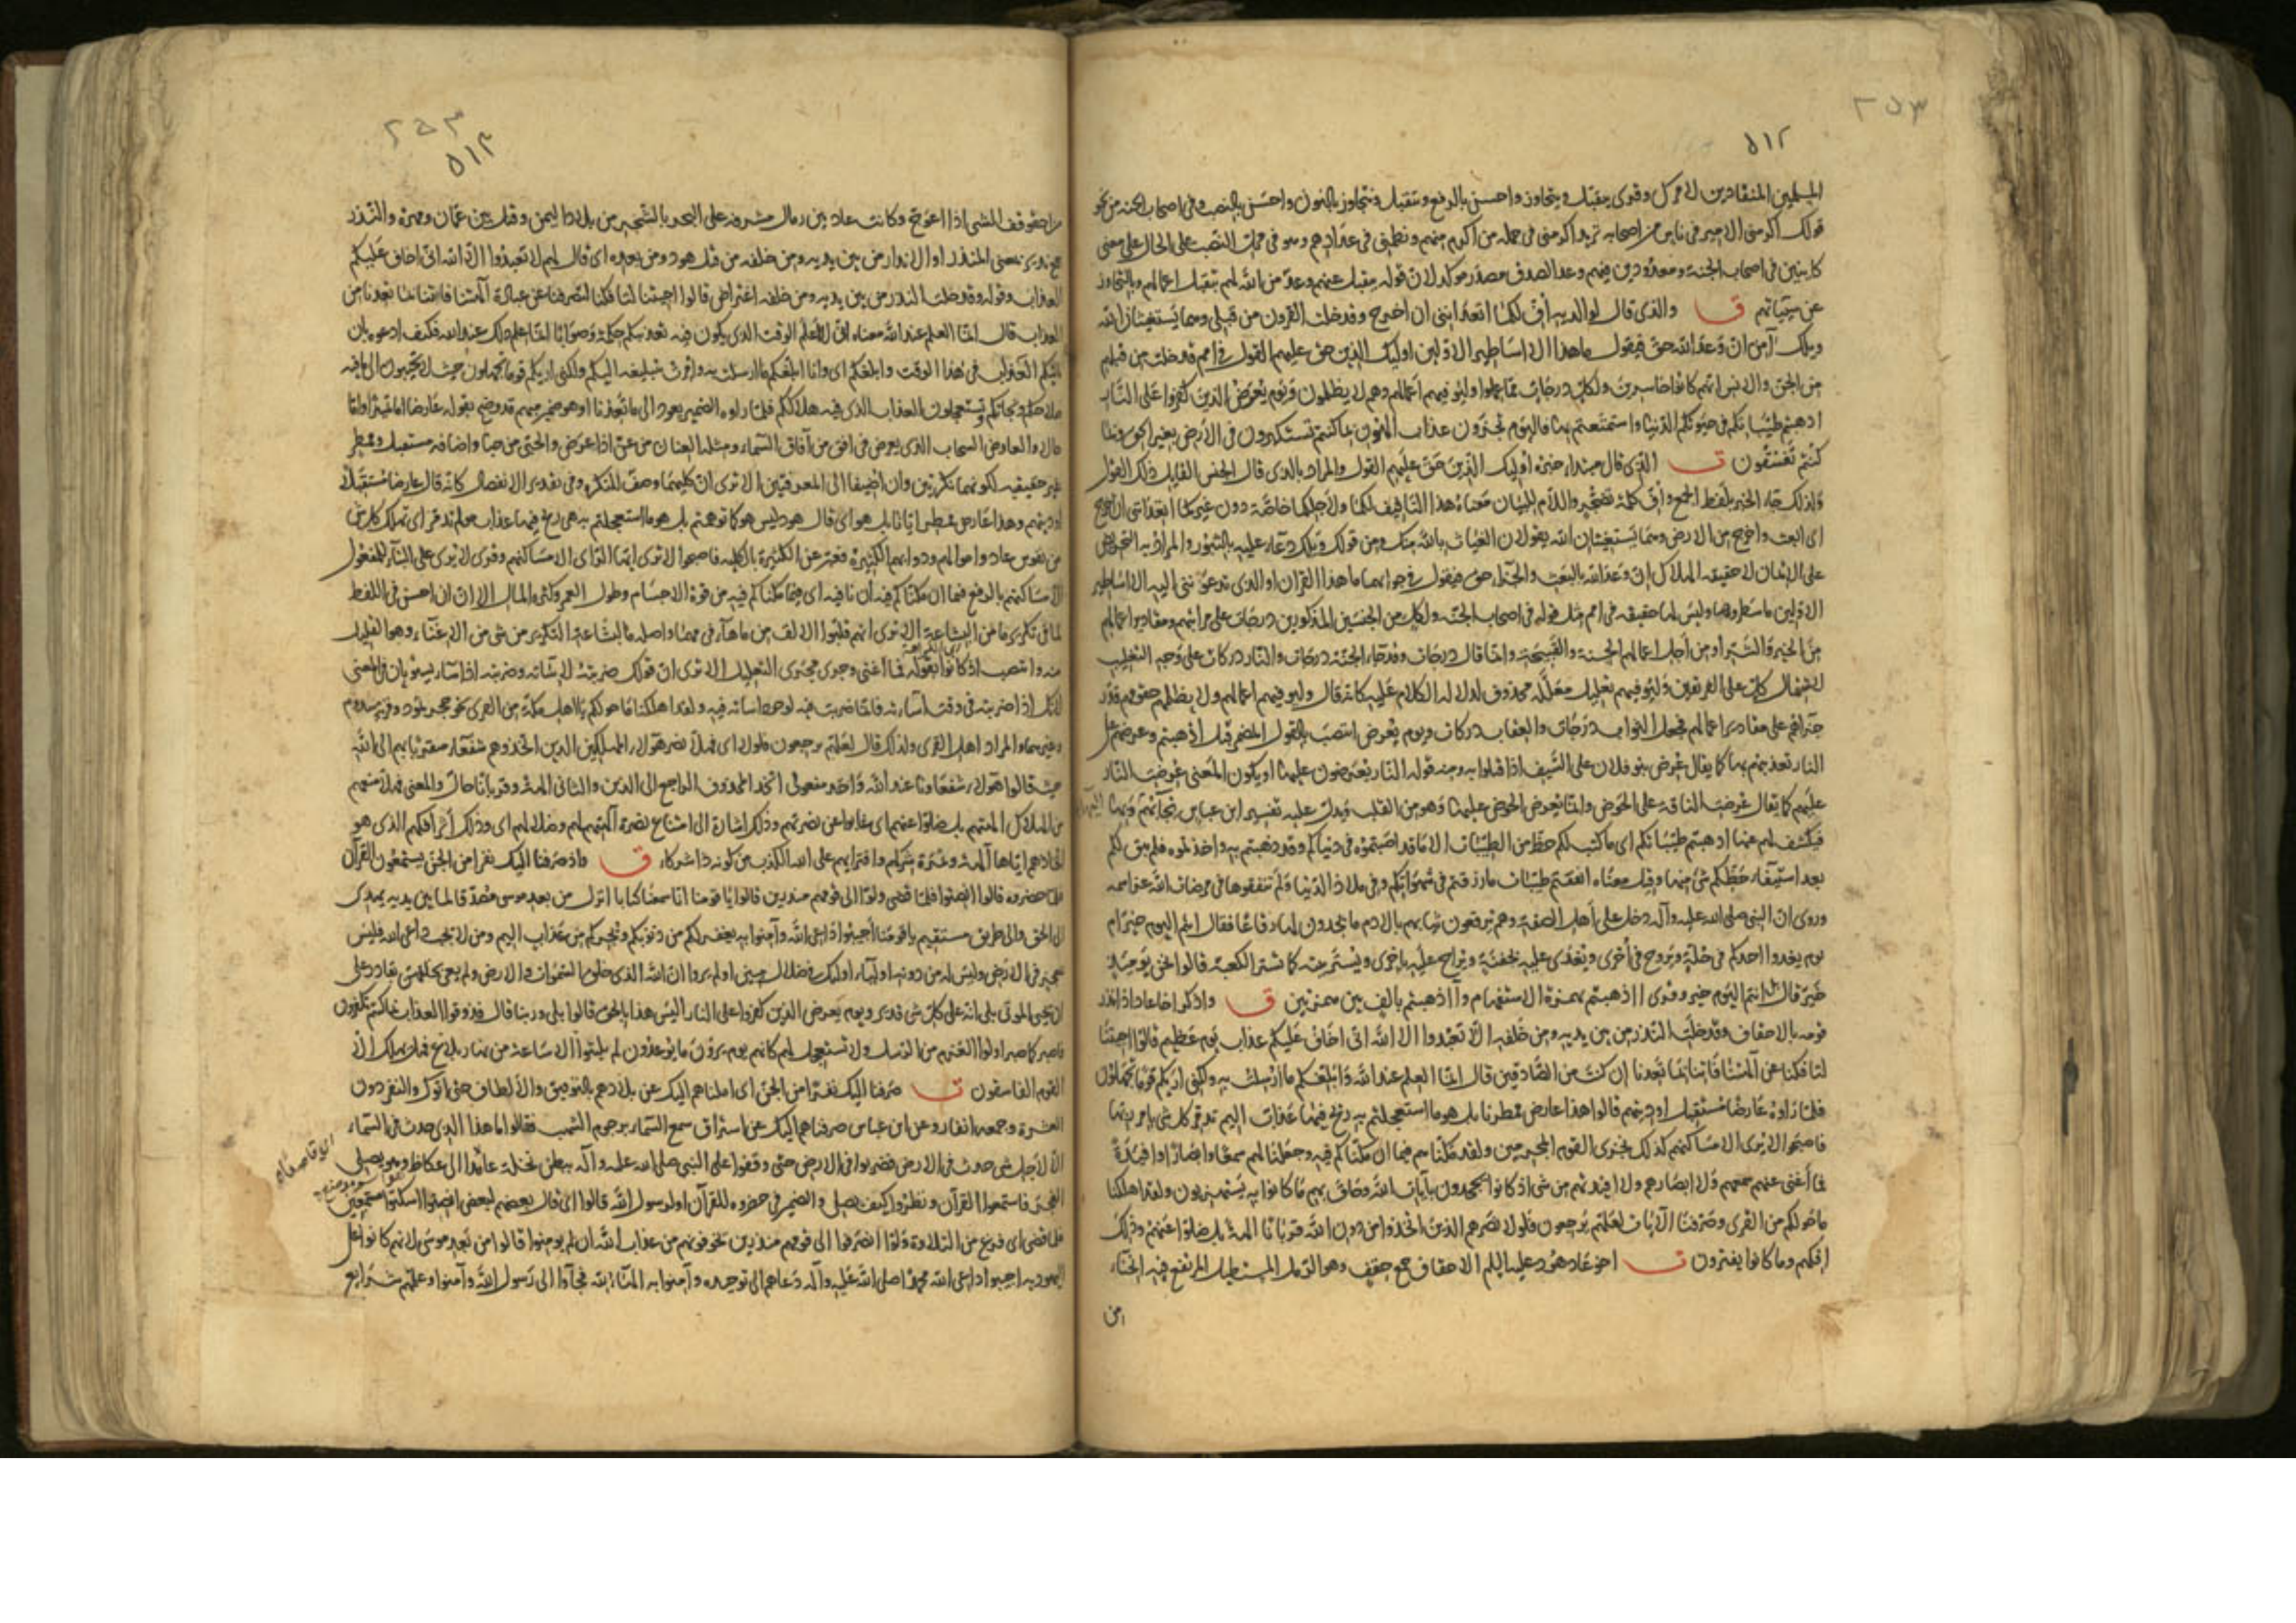 ٥١٢
٢٥٣
المسلمين المنقادين لامرك وقرئ يتقبل ويتجاوز واحسن بالرفع ونتقبل ونتجاوز بالنون واحسن بالنصب وفي اصحاب الجنة من نحو
قولك اكرمني الامير في ناس من اصحابه تريد اكرمني في جملة من اكرم منهم ونظمني في عدادهم وهو في محل النصب على الحال على معنى
كائنين في اصحاب الجنة ومعدودين فيهم وعد الصدق مصدر موكد لان قوله يتقبل عنهم وعد من الله لهم بتقبل اعمالهم وبالتجاوز
عن سيئاتهم ق والذي قال لوالديه اف لكما اتعدانني ان اخرج وقد خلت القرون من قبلي وهما يستغيثان الله
ويلك آمن ان وعد الله حق فيقول ما هذا الا اساطير الاولين اوليك الذين حق عليهم القول في امم قد خلت من قبلهم
من الجن والانس انهم كانوا خاسرين ولكل درجات مما عملوا وليوفيهم اعمالهم وهم لا يظلمون ويوم يعرض الذين كفروا على النار
اذهبتم طيباتكم في حيوتكم الدنيا واستمتعتم بها فاليوم تجزون عذاب الهون بما كنتم تستكبرون في الارض بغير الحق وبما
كنتم تفسقون ت الذي قال مبتداء خبره اوليك الذين حق عليهم القول والمراد بالذي قال الجنس القايل ذلك القول
ولذلك جاء الخبر بلفظ الجمع واف كلمة تضجر واللام للبيان معناه هذا التافيف لكما ولاجلكما خاصة دون غيركما اتعدانني ان اخرج
اي ابعث واخرج من الارض وهما يستغيثان الله يقولان الغياث بالله منك ومن قولك ويلك دعاء عليه بالثبور والمراد به التحريض
على الايمان لا حقيقة الهلاك ان وعد الله بالبعث والجزاء حق فيقول في جوابهما ما هذا القران او الذي تدعونني اليه الا اساطير
الاولين ما سطروها وليس لها حقيقة في امم مثل قوله في اصحاب الجنة ولكل من الجنسين المذكورين درجات على مراتبهم ومقادير اعمالهم
من الخير والشر او من اجل اعمالهم الحسنة والقبيحة وانما قال درجات وقد جاء الجنة درجات والنار دركات على وجه التغليب
لاشتمال كل على الفريقين وليوفيهم تعليل معلله محذوف لدلالة الكلام عليه كانه قال وليوفيهم اعمالهم ولا يظلمهم حقوقهم قدر
جزاهم على مقادير اعمالهم فجعل الثواب درجات والعقاب دركات ويوم يعرض انتصب بالقول المضمر قبل اذهبتم وعرضهم على
النار تعذيبهم بها كما يقال عرض بنو فلان على السيف اذا قتلوا به ومنه قوله النار يعرضون عليها او يكون المعنى عرضت النار
عليهم كما يقال عرضت الناقة على الحوض وانما يعرض الحوض عليها وهو من القلب ويدل عليه تفسير ابن عباس يجاء بهم
فيكشف لهم عنها اذهبتم طيباتكم اي ما كتب لكم حظ من الطيبات الا ما قد اصبتموه في دنياكم وقد ذهبتم به واخذتموه فلم يبق لكم
بعد استيفاء حظكم شي منها وقيل معناه انفقتم طيبات ما رزقتم في شهواتكم وفي ملاذ الدنيا ولم تنفقوها في مرضات الله عز اسمه
وروي ان النبي صلى الله عليه وآله دخل على اهل الصفة وهم يرقعون ثيابهم بالادم ما يجدون لها رقاعا فقال انتم اليوم خير ام
يوم يغدو احدكم في حلة ويروح في اخرى ويغدى عليه بجفنة ويراح عليه باخرى ويستر بيته كما تستر الكعبة قالوا نحن يومئذ
خير قال بل انتم اليوم خير وقرئ ااذهبتم بهمزة الاستفهام وآاذهبتم بالف بين همزتين ق واذكر اخا عاد اذ انذر
قومه بالاحقاف وقد خلت النذر من بين يديه ومن خلفه الا تعبدوا الا الله اني اخاف عليكم عذاب يوم عظيم قالوا اجئتنا
لتافكنا عن آلهتنا فاتنا بما تعدنا ان كنت من الصادقين قال انما العلم عند الله وابلغكم ما ارسلت به ولكني اريكم قوما تجهلون
فلما راوه عارضا مستقبل اوديتهم قالوا هذا عارض ممطرنا بل هو ما استعجلتم به ريح فيها عذاب اليم تدمر كل شي بامر ربها
فاصبحوا لا يرى الا مساكنهم كذلك نجزي القوم المجرمين ولقد مكناهم فيما ان مكناكم فيه وجعلنا لهم سمعا وابصارا وافئدة
فما اغنى عنهم سمعهم ولا ابصارهم ولا افئدتهم من شي اذ كانوا يجحدون بآيات الله وحاق بهم ما كانوا به يستهزؤن ولقد اهلكنا
ما حولكم من القرى وصرفنا الآيات لعلهم يرجعون فلولا نصرهم الذين اتخذوا من دون الله قربانا الهة بل ضلوا عنهم وذلك
افكهم وما كانوا يفترون ت اخو عاد هود عليه السلم الاحقاف جمع حقف وهو الرمل المستطيل المرتفع فيه انحناء
من
٢٥٣
٥١٣
من احقوقف الشي اذا اعوج وكانت عاد بين رمال مشرفة على البحر بالشحر من بلاد اليمن وقيل بين عمان ومهرة والنذر
جمع نذير بمعنى المنذر او الانذار من بين يديه ومن خلفه من قبل هود ومن بعده اي قال لهم لا تعبدوا الا الله اني اخاف عليكم
العذاب وقوله وقد خلت النذر من بين يديه ومن خلفه اعتراض قالوا اجئتنا لتافكنا لتصرفنا عن عبادة آلهتنا فاتنا بما تعدنا من
العذاب قال انما العلم عند الله معناه اني لا اعلم الوقت الذي يكون فيه تعذيبكم حكمة وصوابا انما علم ذلك عند الله فكيف ادعوه بان
ياتيكم العذاب في هذا الوقت وابلغكم اي وانا ابلغكم ما ارسلت به وامرت بتبليغه اليكم ولكني اريكم قوما تجهلون حيث لا تجيبون الى ما فيه
صلاحكم ونجاتكم وتستعجلون العذاب الذي فيه هلاككم فلما راوه الضمير يعود الى ما تعدنا او هو ضمير مبهم قد وضح بقوله عارضا اما تمييزا واما
حالا والعارض السحاب الذي يعرض في افق من آفاق السماء ومثله العنان من عن اذا عرض والحبي من حبا واضافة مستقبل وممطر
غير حقيقية لكونهما نكرتين وان اضيفا الى المعرفتين الا ترى ان كليهما وصف للنكرة وفي تقدير الانفصال كانه قال عارضا مستقبلا
اوديتهم وهذا عارض ممطر ايانا بل هو اي قال هود ليس هو كما توهمتم بل هو ما استعجلتم به هي ريح فيها عذاب اليم تدمر اي تهلك كل شي
من نفوس عاد واموالهم ودوابهم الكثيرة فعبر عن الكثرة بالكلية فاصبحوا لا ترى ايها الرائي الا مساكنهم وقرئ لا يرى على البناء للمفعول
الا مساكنهم بالرفع فيما ان مكناكم فيه ان نافية اي فيما مكناكم فيه من قوة الاجسام وطول العمر وكثرة المال الا ان ان احسن في اللفظ
لما في تكرير ما من البشاعة الا ترى انهم قلبوا الالف من ماها في مهما واصله ماما لبشاعة التكرير من شي من الاغناء وهو القليل
منه وانتصب اذ كانوا بقوله فما اغنى وجرى مجرى التعليل الا ترى ان قولك ضربته لاساءته وضربته اذا ساء يستويان في المعنى
لانك اذا ضربته في وقت اساءته فانما ضربته فيه لوجود اساءته فيه ولقد اهلكنا ما حولكم يا اهل مكة من القرى نحو حجر ثمود وقرية سدوم
وغيرهما والمراد اهل القرى ولذلك قال لعلهم يرجعون فلولا اي فهلا نصر هؤلاء المهلكين الذين اتخذوهم شفعاء متقربا بهم الى الله
حيث قالوا هؤلاء شفعاونا عند الله واحد مفعولي اتخذ المحذوف الراجع الى الذين والثاني الهة وقربانا حال والمعنى فهلا منعهم
من الهلاك الهتهم بل ضلوا عنهم اي غابوا عن نصرتهم وذلك اشارة الى امتناع نصرة آلهتهم لهم وضلالهم اي وذلك اثر افكهم الذي هو
اتخاذهم اياها آلهة وثمرة شركهم وافترايهم على الله الكذب من كونه ذا شركاء ق واذ صرفنا اليك نفرا من الجن يستمعون القرآن
فلما حضروه قالوا انصتوا فلما قضي ولوا الى قومهم منذرين قالوا يا قومنا انا سمعنا كتابا انزل من بعد موسى مصدقا لما بين يديه يهدي
الى الحق والى طريق مستقيم يا قومنا اجيبوا داعي الله وآمنوا به يغفر لكم من ذنوبكم ويجركم من عذاب اليم ومن لا يجب داعي الله فليس
بمعجز في الارض وليس له من دونه اولياء اوليك في ضلال مبين اولم يروا ان الله الذي خلق السموات والارض ولم يعي بخلقهن بقادر على
ان يحيي الموتى بلى انه على كل شي قدير ويوم يعرض الذين كفروا على النار اليس هذا بالحق قالوا بلى وربنا قال فذوقوا العذاب بما كنتم تكفرون
فاصبر كما صبر اولوا العزم من الرسل ولا تستعجل لهم كانهم يوم يرون ما يوعدون لم يلبثوا الا ساعة من نهار بلاغ فهل يهلك الا
القوم الفاسقون ت صرفنا اليك نفرا من الجن اي املناهم اليك عن بلادهم بالتوفيق والالطاف حتى اتوك والنفر دون
العشرة وجمعه انفار وعن ابن عباس صرفناهم اليك عن استراق سمع السماء برجوم الشهب فقالوا ما هذا الذي حدث في السماء
الا لاجل شي حدث في الارض فضربوا في الارض حتى وقفوا على النبي صلى الله عليه وآله ببطن نخلة عامدا الى عكاظ وهو يصلي
الفجر فاستمعوا القرآن ونظروا كيف يصلي والضمير في حضروه للقرآن او لرسول الله قالوا اي قال بعضهم لبعض انصتوا اسكتوا مستمعين
فلما قضي اي فرغ من التلاوة ولوا انصرفوا الى قومهم منذرين يخوفونهم من عذاب الله ان لم يومنوا قالوا من بعد موسى لانهم كانوا على
اليهودية اجيبوا داعي الله محمدا صلى الله عليه وآله دعاهم الى توحيده وآمنوا به الهاء لله فجاؤا الى رسول الله وآمنوا وعلمهم شرايع